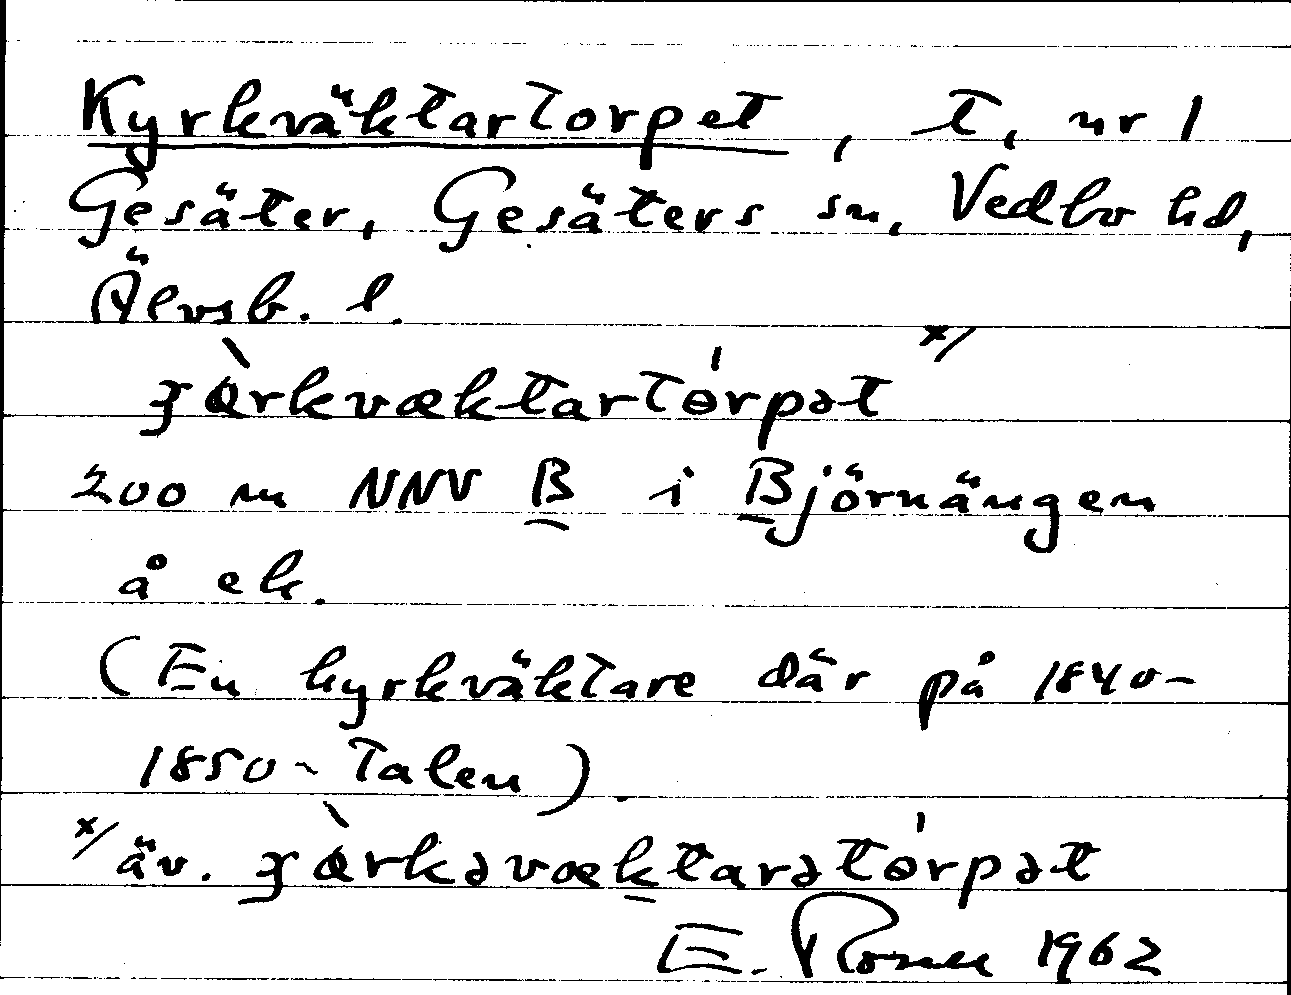 Kyrkväktartorpet, t, nr 1
Gesäter, Gesäters sn, Vedbo hd,
Älvsb. l.
ʒɵ̀rkvæktartɵ́rpət x/
200 m NNV B i Björnängen
å ek.
(En kyrkväktare där på 1840-
1850-talen).
x/ äv. ʒɵ̀rkəvæktarətɵ́rpət
E. 1962